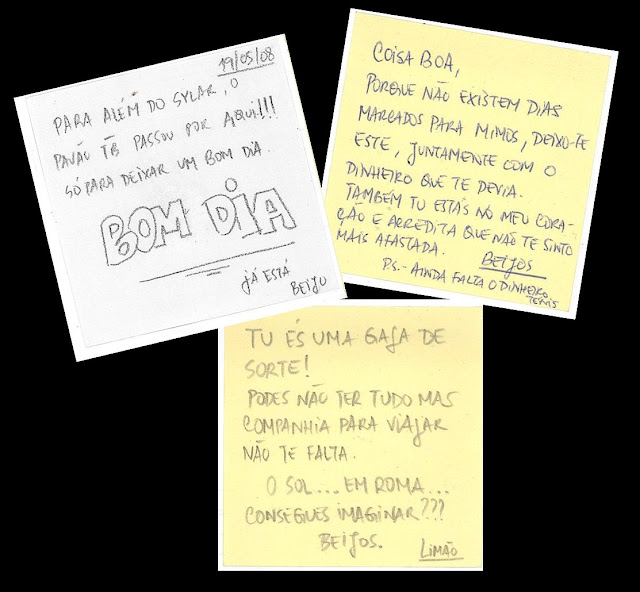 19/05/08
PARA ALÉM DO SYLAR, O
PAVÃO TB PASSOU POR AQUI!!!
SÓ PARA DEIXAR UM BOM DIA.
BOM DIA
JÁ ESTÁ
BEIJO
COISA BOA,
PORQUE NÃO EXISTEM DIAS
MARCADOS PARA MIMOS, DEIXO-TE
ESTE, JUNTAMENTE COM O
DINHEIRO QUE TE DEVIA.
TAMBÉM TU ESTÁS NO MEU CORA-
ÇÃO E ACREDITA QUE NÃO TE SINTO
MAIS AFASTADA.
BEIJOS
P.S.- AINDA FALTA O DINHEIRO
TENIS
TU ÉS UMA GAJA DE
SORTE!
PODES NÃO TER TUDO MAS
COMPANHIA PARA VIAJAR
NÃO TE FALTA.
O SOL... EM ROMA...
CONSEGUES IMAGINAR???
BEIJOS.
LIMÃO